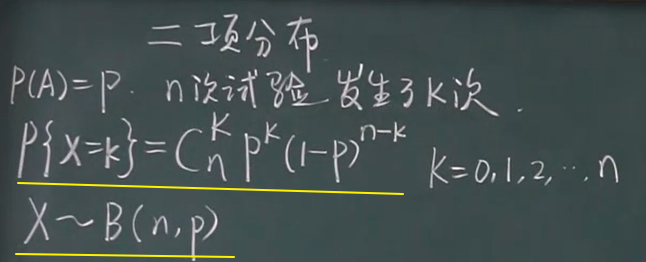 二项分布
P(A)=P. n次试验 发生了K次.
P{X=k}=C_n^K P^k (1-P)^{n-k} K=0,1,2,…,n
X~B(n,p)